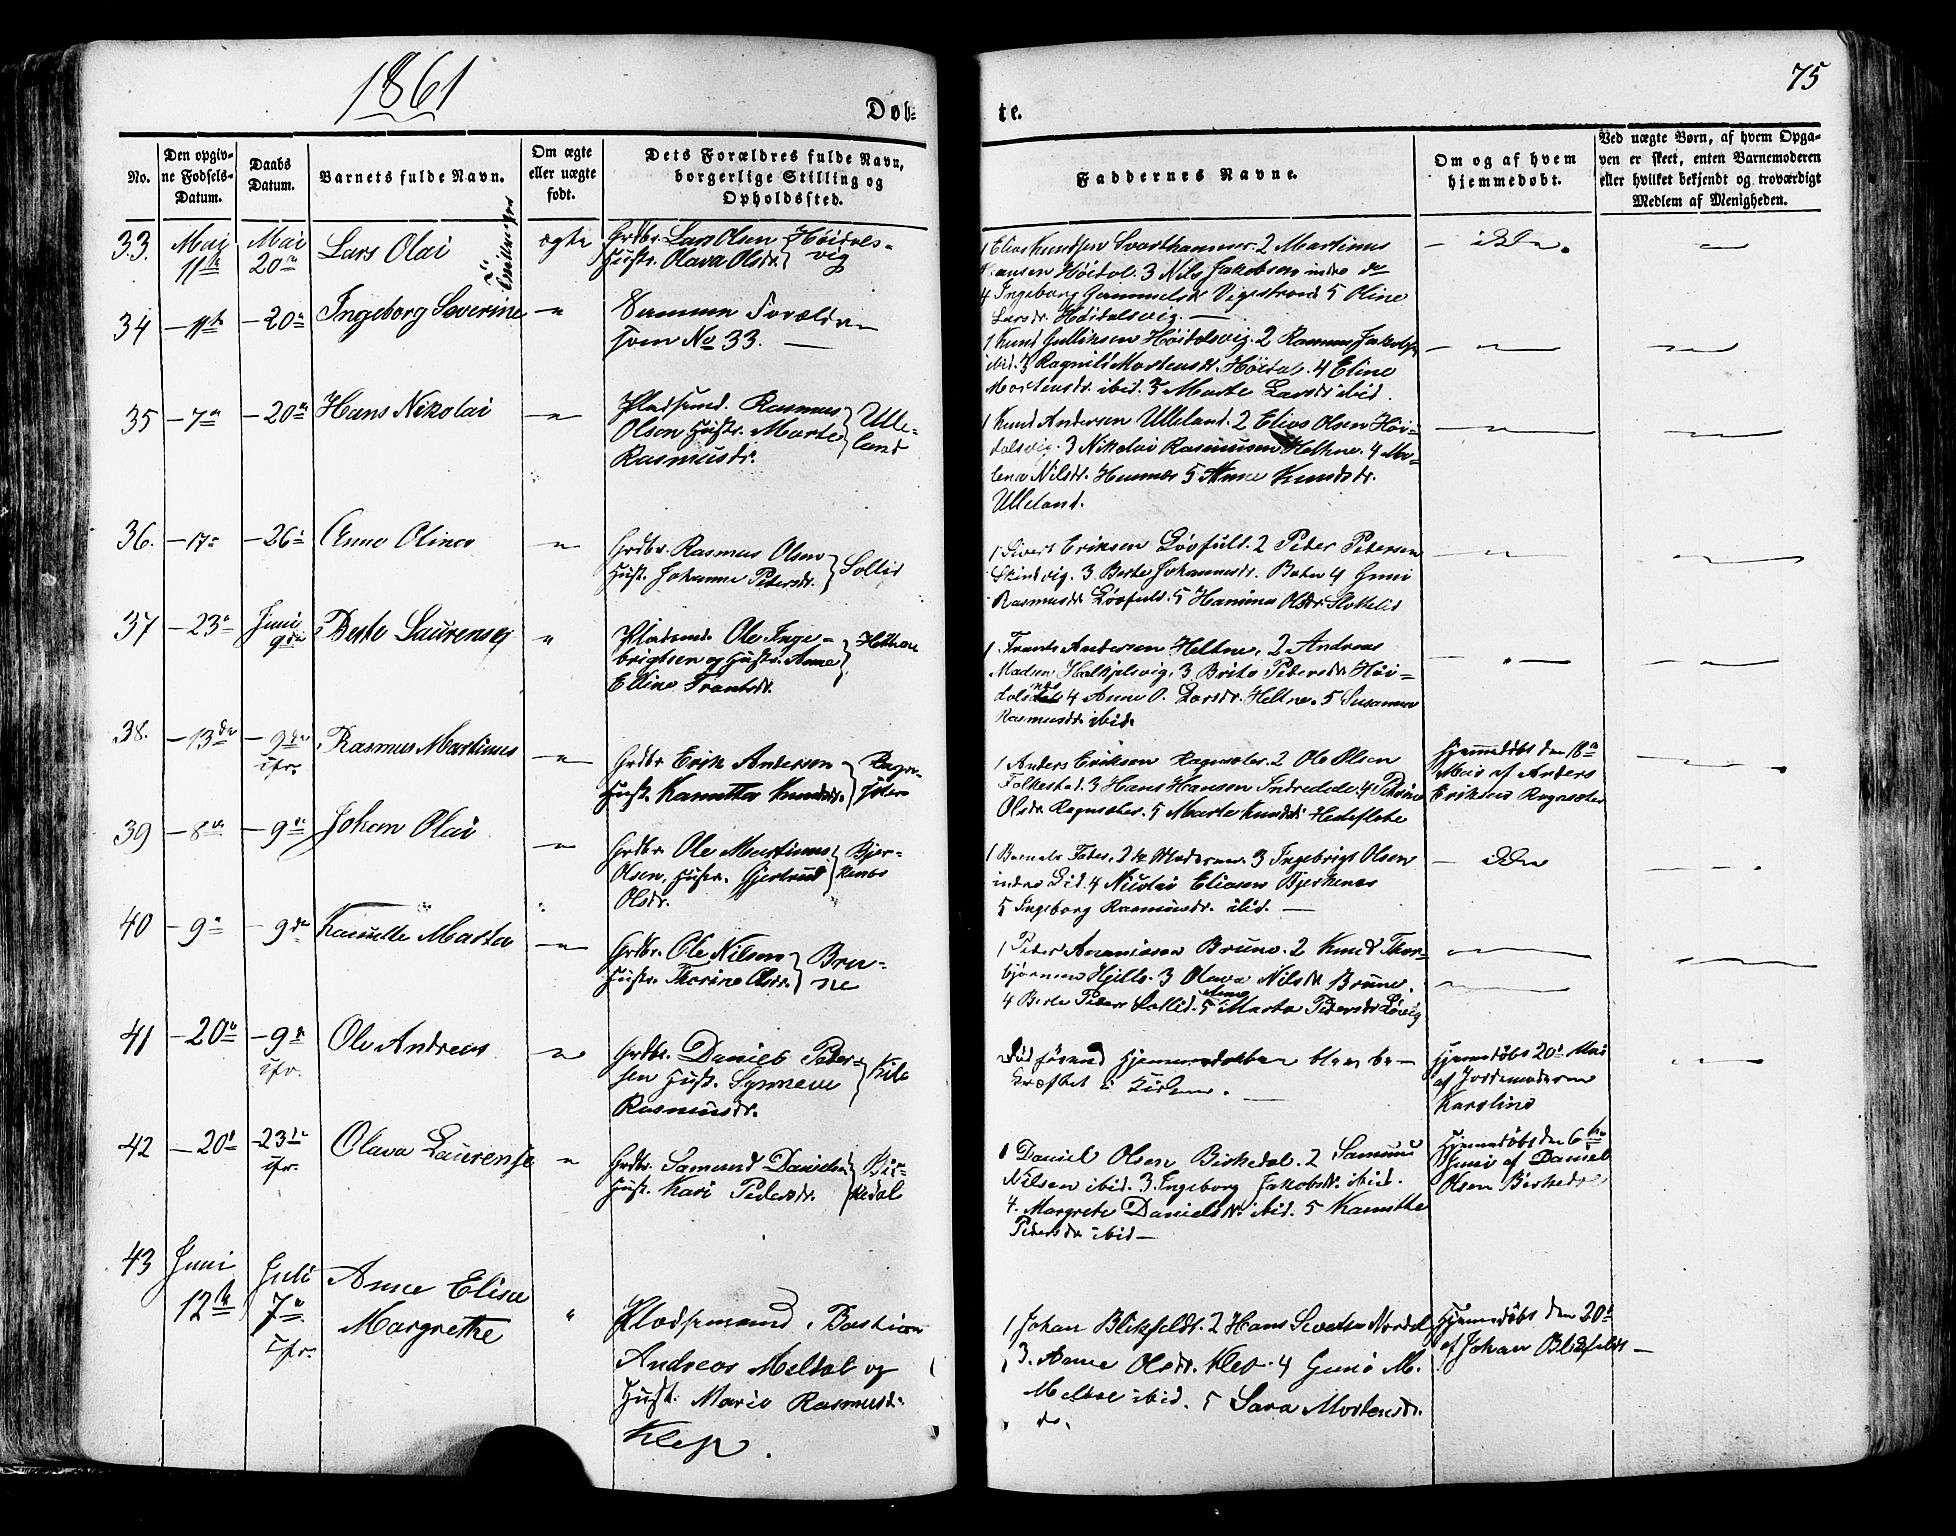 1861
75
Døb-
te.
No.
Den opgiv-
ne Fødsels-
Datum.
Daabs
Datum.
Barnets fulde Navn.
Om ægte
eller uægte
født.
Dets Forældres fulde Navn,
borgerlige Stilling og
Opholdssted.
Faddernes Navne.
Om og af hvem
hjemmedøbt.
Ved uægte Børn, af hvem Opga-
ven er skeet, enten Barnemoderen
eller hvilket bekjendt og troværdigt
Medlem af Menigheden.
33. Mai 11te Mai 20de Lars Olai ægte
Grdbr. Lars Olsen Høidals-
Hustr. Olava Olsdr. vig
1 Elias Knudsen Svarthammer. 2 Martinus
Hansen Høidal. 3 Nils Jakobsen indre do
4 Ingeborg Gammelsdr Vigestrand 5 Oline
Larsdr. Høidalsvig. —
ikke.
34 — 11te — 20de Ingeborg Severine — " —
Samme Forældre
som No 33. —
1 Knud Gulliksen Høidalsvig. 2 Rasmus Jakobs.
ibid. 3 Ragnild Mortensdr. Høidal. 4 Eline
Mortensdr. ibid. 5 Marte Larsdr ibid.
35 — 7de — 20de Hans Nikolai — " —
Pladsmd. Rasmus Ulle-
Olsen Hustr. Marte land
Rasmusdr.
1 Knud Andersen Ulleland. 2 Elias Olsen Høi-
dalsvig. 3 Nikolai Rasmussen Heltne. 4 Ma-
lena Nilsdr. Hunnes 5 Anne Knudsdr.
Ulleland.
36. — 17de — 26de Anne Olina — " —
Grdbr. Rasmus Olsen
Hust. Johanne Petersdr. Sollid
1 Sivert Eriksen Løvfald. 2 Peder Petersen
Skindvig. 3 Berte Johannesdr. 4 Guri
Rasmusdr Løvfald. 5 Hansina Olsdr
37 — 23de Juni 9de Berte Laurense "
Pladsmd. Ole Inge- Heltne
brigtsen og Hustr. Anne
Elline Frantsdr.
1. Frants Andersen Heltne, 2 Andreas
Madsen Halkjelsvig, 3 Brite Petersdr. Høi-
dalsnes 4 Anne O. Larsdr. Heltne. 5 Susanna
Rasmusdr. ibid.
38. — 13de — 9de ifr. Rasmus Martinus — " —
Grdbr Erik Andersen Ragn-
Hust. Kanutta Knudsdr. sæter
1 Anders Eriksen Ragnsæter. 2 Ole Olsen
Folkestad. 3 Hans Hansen Indredede. 4
Olsdr Ragnsæter. 5 Marte Knudsdr Hedeflote
Hjemmedøbt den 18de
Mai af Anders
Eriksen Ragnsæter
39 — 8de — 9de Johan Olai — " —
Grdbr. Ole Martinus Bjer-
Olsen, Hustr. Gjertrud kenes
Olsdr.
1 Barnets Fader, 2 Moderen 3 Ingebrigt Olsen
indre Lid. 4 Nicolai Eliasen Bjerkenes
5 Ingeborg Rasmusdr. ibid. —
— ikke
40 — 9de — 9de Kanutte Marta — " —
Grdbr. Ole Nilsen Bru-
Hustr. Thorine Olsdr. ne
1 Peter Ananiasen Brune. 2 Knud Thor-
bjørnsen Hjelle. 3 Olava Nilsdr Brune.
4 Berte Pedersdr Sollid. 5 Anne Marta Pedersdr Løvig
41 — 20de — 9de ifr. Ole Andreas — " —
Grdbr. Daniel Peder- Kile
sen Hust. Synneve
Rasmusdr.
Død førend Hjemmedaaben blev be-
kræftet i Kirken. —
Hjemmedøbt 20de Mai
af Jordemoderen
Karoline
42 — 20de — 23de ifr. Olava Laurense "
Grdbr. Samund Danielsen Bir-
Hust. Kari Pedersdr. kedal
1 Daniel Olsen Birkedal. 2 Samund
Nilsen ibid. 3. Ingeborg Jakobsdr. ibid.
4. Margrete Danielsdr. ibid. 5 Kanutte
Pedersdr ibid —
Hjemmedøbt den 6te
Juni af Daniel
Olsen Birkedal
43 Juni 12te Juli 7de ifr. Anne Elise
Margrethe "
Pladsemand Bastian
Andreas Meldal og
Hust. Marie Rasmusdr.
Klep.
1 Johan Blikfeldt. 2 Hans Nordal
3. Anne Olsdr. Klep. 4 Guro M.
ibid. 5 Sara Mortensdr.
do.
Hjemmedøbt den 20de
af Johan Blikfeldt —